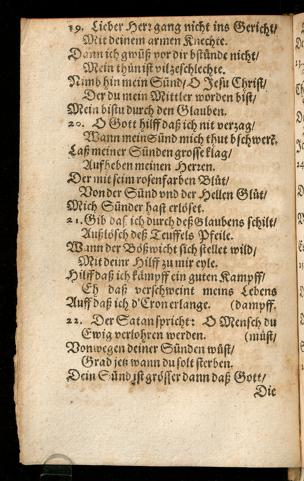 19. Lieber Herr gang nicht ins Gericht/
Mit deinem armen Knechte.
Dann ich gwüß vor dir bstünde nicht/
Mein thün ist vil zeschlechte.
Nimb hin mein Sünd/ O Jesu Christ/
Der du mein Mittler worden bist/
Mein bistu durch den Glauben.
20. O Gott hilff daß ich nit verzag/
Wann mein Sünd mich thut bschwert.
Laß meiner Sünden grosse klag/
Auffheben meinen Herren.
Der mit seim rosenfarben Blüt/
Von der Sünd vnd der Hellen Glüt/
Mich Sünder hast erlöset.
21. Gib das ich durch deß Glaubens schilt/
Außlösch deß Teuffels Pfeile.
Wann der Bößwicht sich stellet wild/
Mit deinr Hilff zu mir eyle.
Hilff daß ich kämpff ein guten Kampff/
Eh daß verschweint meins Lebens
Auff daß ich d'Cron erlange. (dampff.
22. Der Satan spricht: O Mensch du
Ewig verlohren werden. (müst/
Von wegen deiner Sünden wüst/
Grad jetz wann du solt sterben.
Dein Sünd ist grösser dann daß Gott/
Die